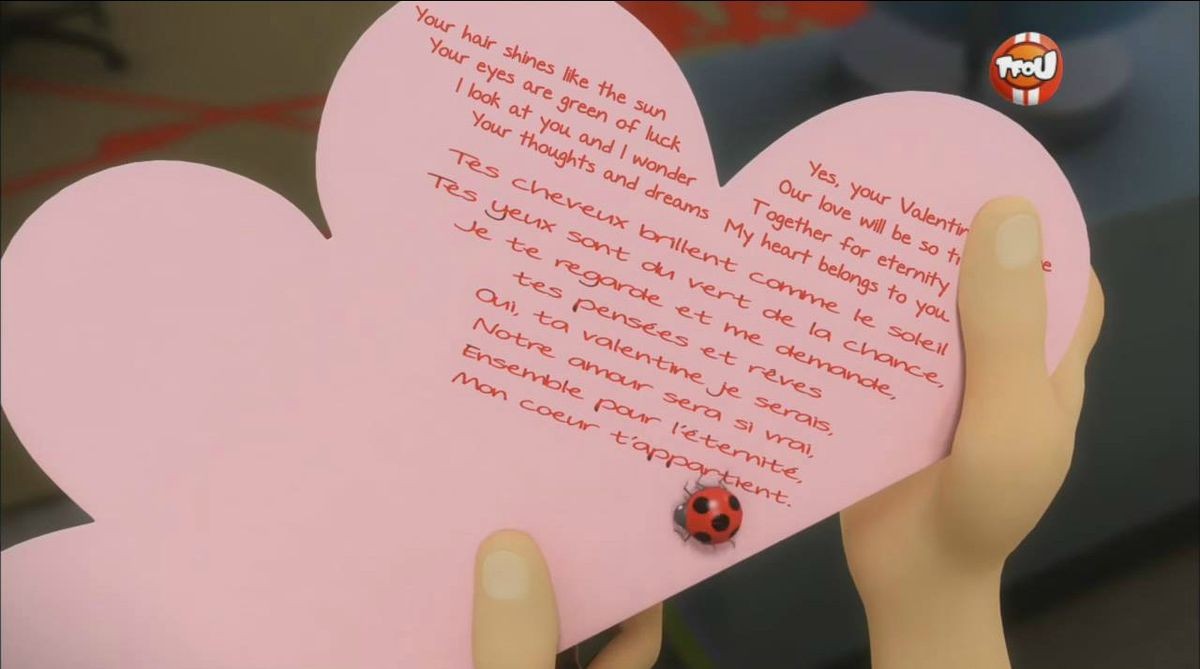 Your hair shines like the sun
Your eyes are green of luck
I look at you and I wonder
Your thoughts and dreams
Yes, your Valentin
Our love will be so tr
Together for eternity
My heart belongs to you
Tes cheveux brillent comme le soleil
Tes yeux sont du vert de la chance,
Je te regarde et me demande,
tes pensées et rêves
Oui, ta valentine je serais,
Notre amour sera si vrai,
Ensemble pour l'éternité,
Mon coeur t'appartient.
TFOU